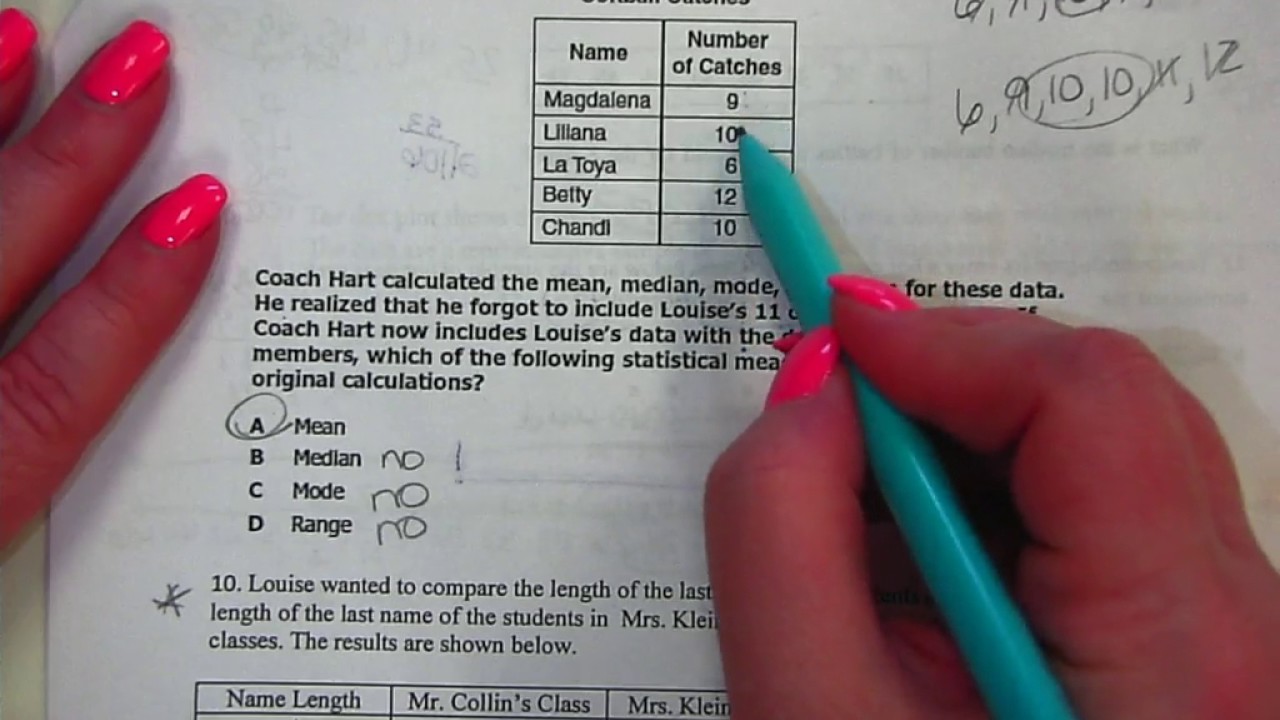 Name Number of Catches
Magdalena 9
Liliana 10
La Toya 6
Betty 12
Chandi 10
6, 9, 10, 10, 11, 12
Coach Hart calculated the mean, median, mode, for these data.
He realized that he forgot to include Louise's 11
Coach Hart now includes Louise's data with the
members, which of the following statistical
original calculations?
A Mean
B Median no
C Mode no
D Range no
10. Louise wanted to compare the length of the last
length of the last name of the students in Mrs.
classes. The results are shown below.
Name Length Mr. Collin's Class Mrs.